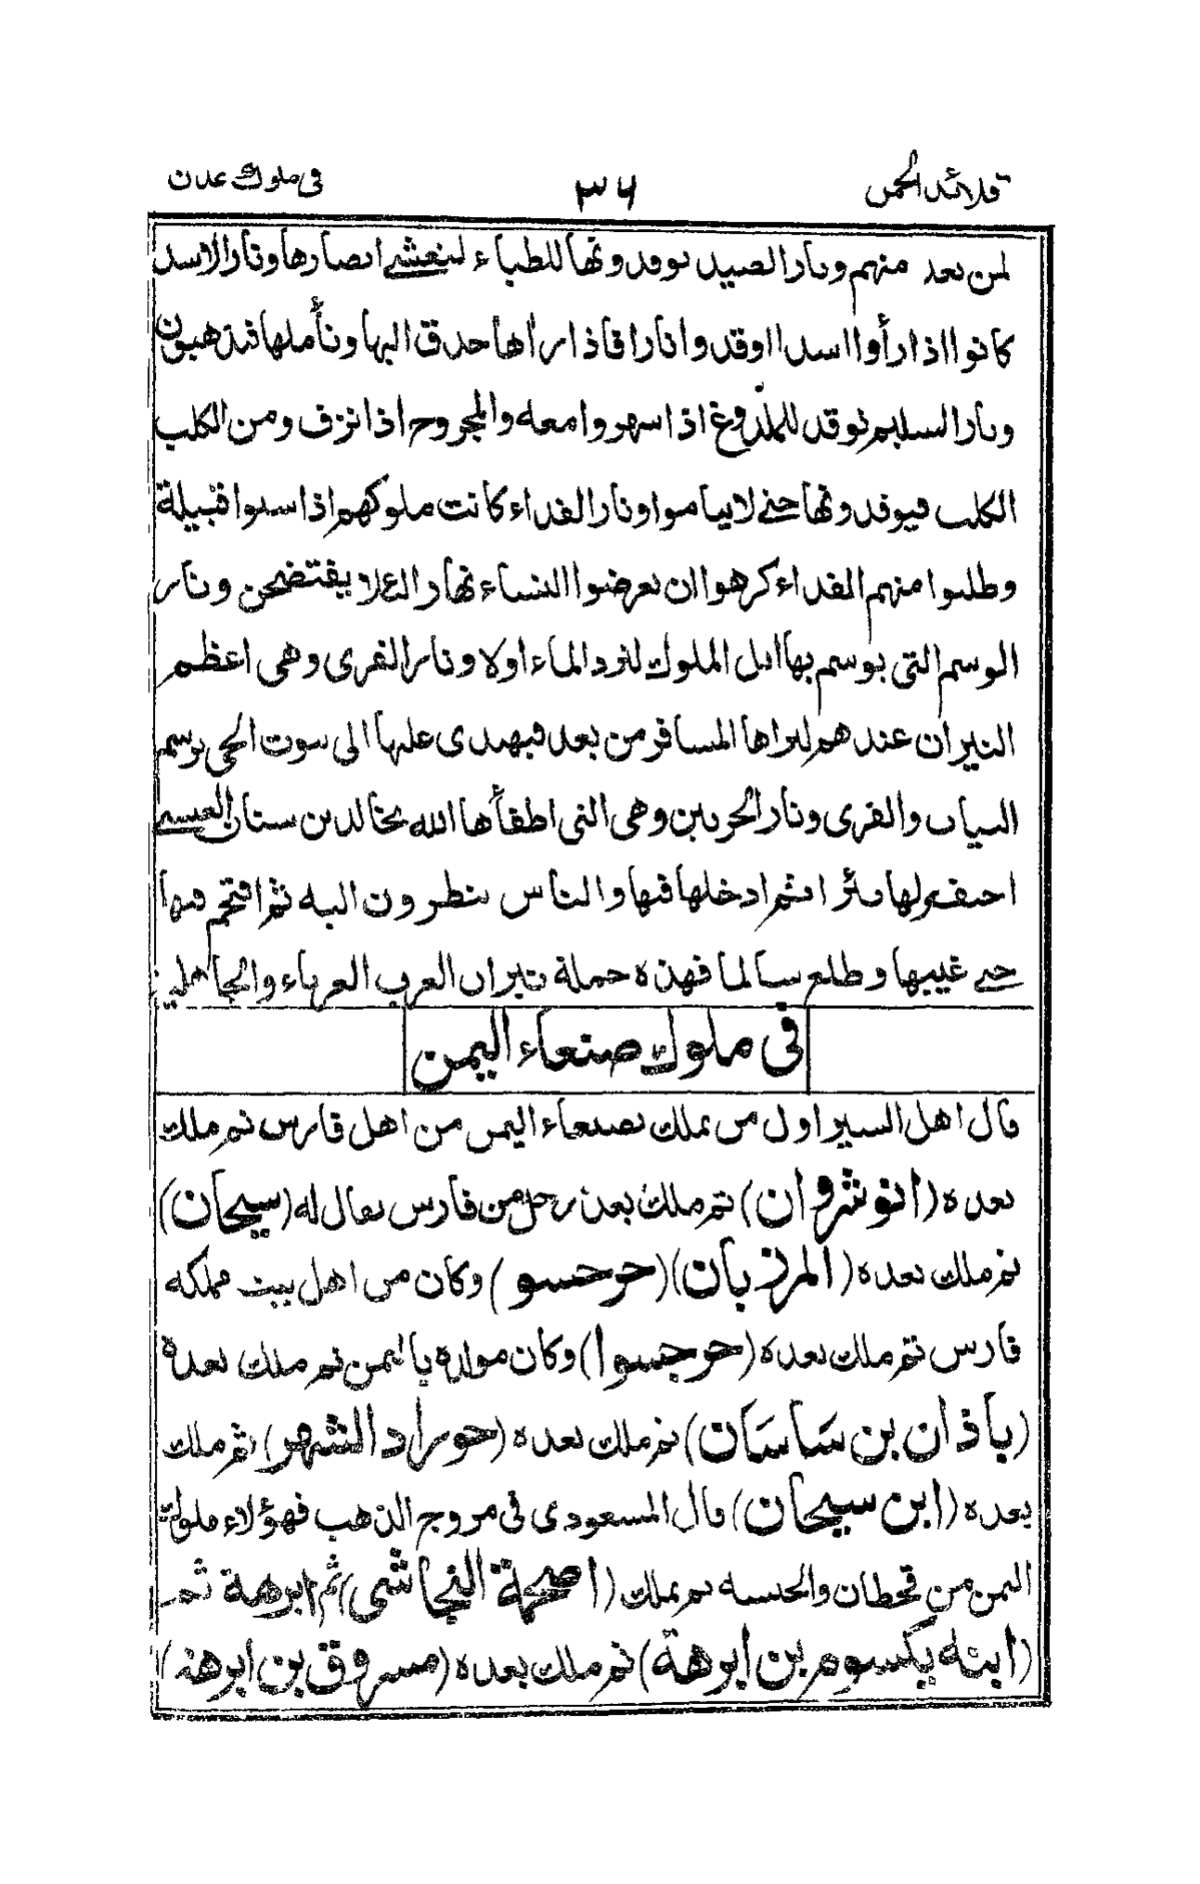 قلائد الجمن ٣٦ في ملوك عدن
لمن بعد منهم ونار الصيد توقدونها للظباء لتعشي ابصارها ونار الاسد
كانوا اذا رأوا اسدا اوقدوا نارا فاذا راها حدق اليها وتأملها فتذهبون
ونار السليم توقد للملدوغ اذا سهروا معه والمجروح اذا نزف ومن الكلب
الكلب فيوقدونها حتى لا يناموا ونار الفداء كانت ملوكهم اذا سبوا قبيلة
وطلبوا منهم الفداء كرهوا ان تعرضوا النساء نهارا لئلا يفتضحن ونار
الوسم التي يوسم بها ابل الملوك لترد الماء اولا ونار القرى وهي اعظم
النيران عندهم ليراها المسافر من بعد فيهتدى عليها الى بيوت الحي برسم
البيات والقرى ونار الحرتين وهي التي اطفأها الله بخالد بن سنان العبسي
احتفر لها بئرا ثم ادخلها فيها والناس ينظرون اليه ثم اقتحم فيها
حتى غيبها وطلع سالما فهذه جملة نيران العرب العرباء والجاهلية
في ملوك صنعاء اليمن
قال اهل السير اول من تملك بصنعاء اليمن من اهل فارس ثم ملك
بعده (انوشروان) ثم ملك بعده رجل من فارس يقال له (سيحان)
ثم ملك بعده (المرزبان) (خرخسو) وكان من اهل بيت مملكه
فارس ثم ملك بعده (خرجسوا) وكان مولده باليمن ثم ملك بعده
(باذان بن ساسان) ثم ملك بعده (حوراد الشهر) ثم ملك
بعده (ابن سيحان) قال المسعودى فى مروج الذهب فهؤلاء ملوك
اليمن من قحطان والحبسه ثم تملك (اصحمة النجاشى) ثم ابرهة ثم
(ابنه يكسوم بن ابرهة) ثم ملك بعده (مسروق بن ابرهة)